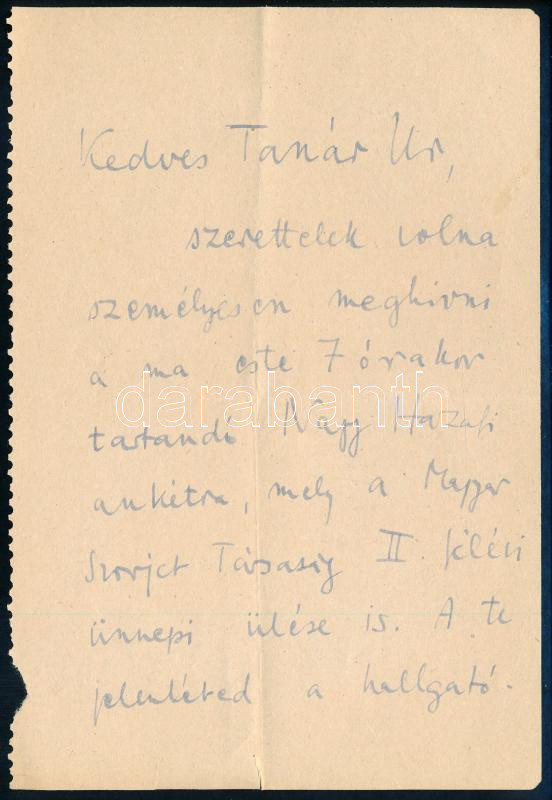 Kedves Tanár Ur,
szerettelek volna
személyesen meghivni
a ma este 7 órakor
darabanth
tartandó Nagy Hazafi
ankétra, mely a Magyar
Szovjet Társaság II.
ünnepi ülése is. A te
jelenléted a hallgató-